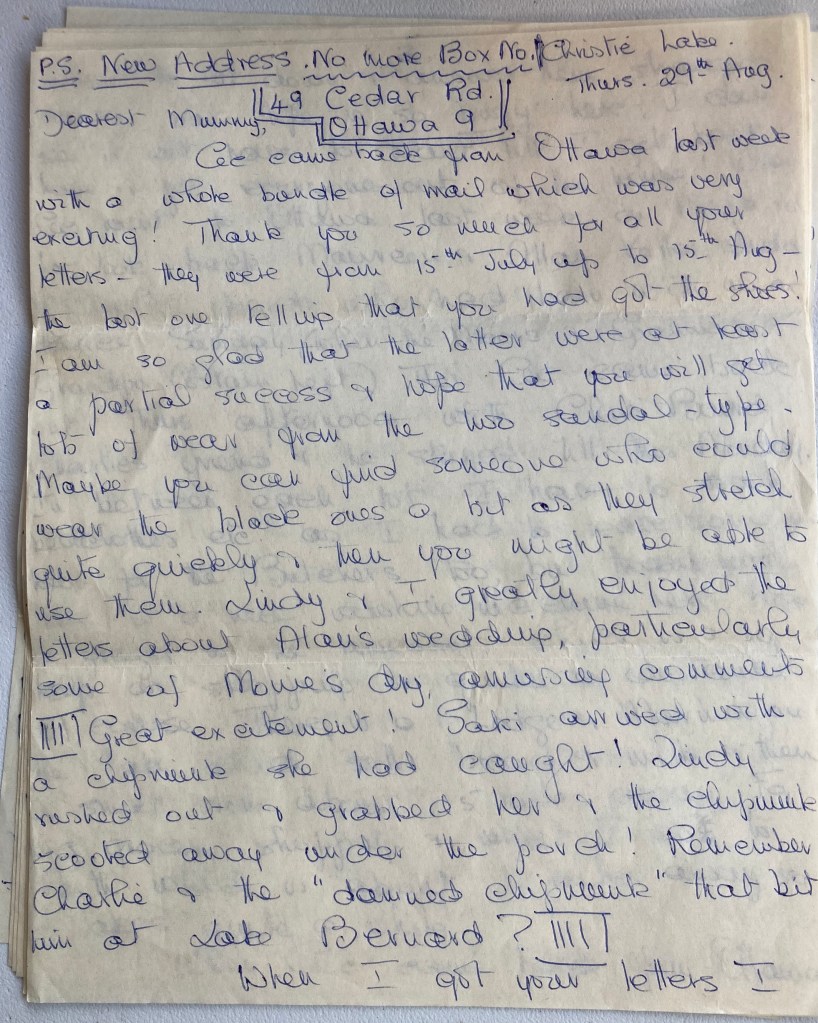 P.S. New Address. No more Box No. Christie Lake.
Thurs. 29th Aug.
49 Cedar Rd.
Ottawa 9
Dearest Mummy,
Cec came back from Ottawa last week
with a whole bundle of mail which was very
exciting! Thank you so much for all your
letters - they were from 15th July up to 15th Aug -
the last one telling that you had got the shoes!
I am so glad that the latter were at least
a partial success & hope that you will get
lots of wear from the two sandal-type.
Maybe you can find someone who could
wear the black ones a bit as they stretch
quite quickly & then you might be able to
use them. Lindy & I greatly enjoyed the
letters about Alan's wedding, particularly
some of Mowie's dry, amusing comments
Great excitement! Saki arrived with
a chipmunk she had caught! Lindy
rushed out & grabbed her & the chipmunk
scooted away under the porch! Remember
Charlie & the "damned chipmunk" that bit
him at Lake Bernard?
When I got your letters I